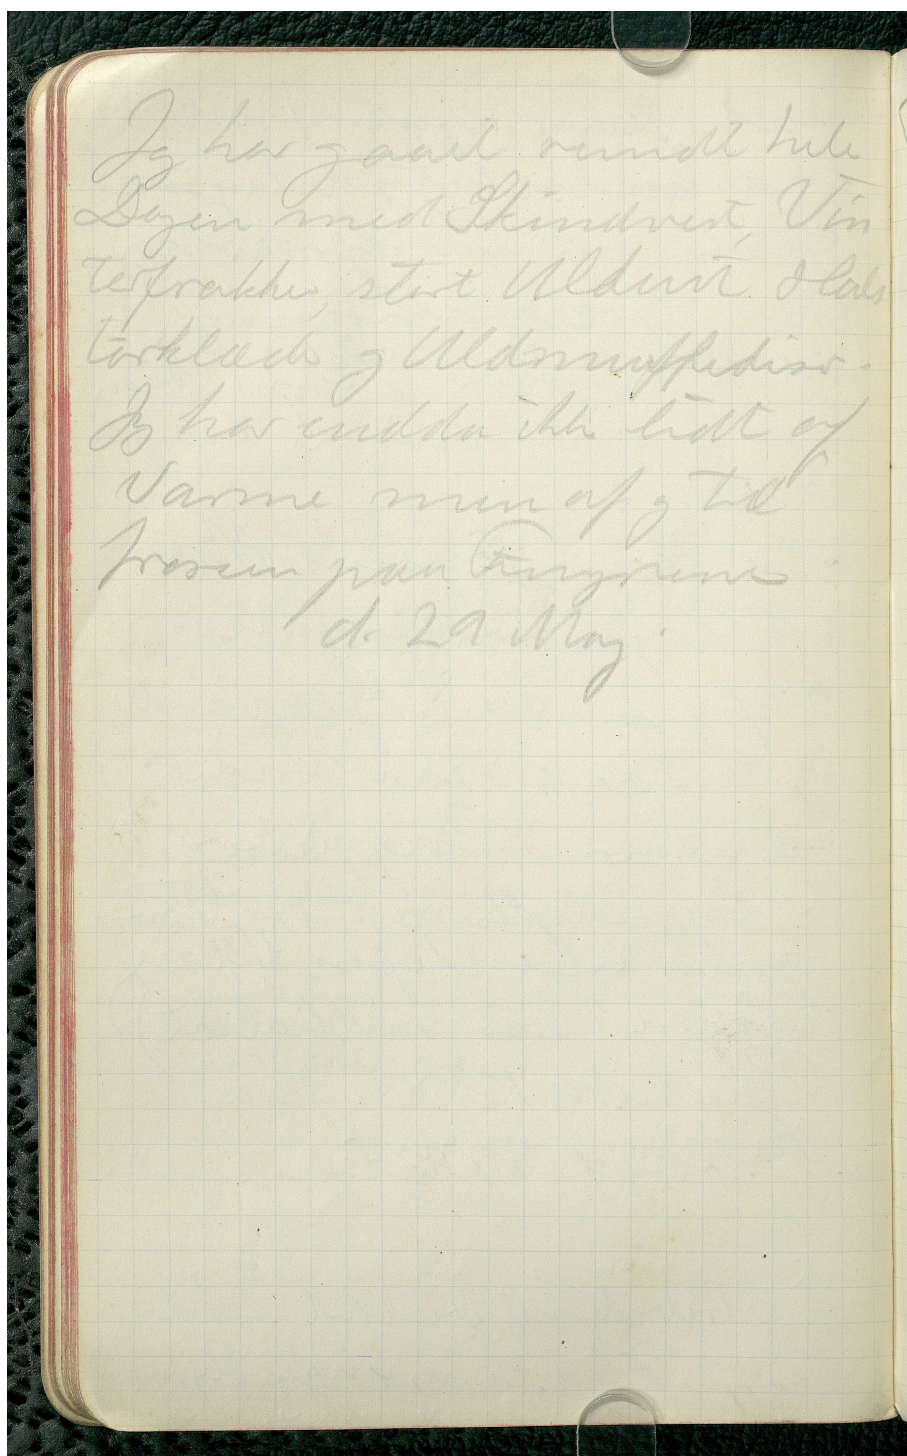 Jeg har gaaet rundt hele
Dagen med Skindvest, Vin
terfrakke, stort Uldent Hals
tørklæde og Uldmuffediser.
Jeg har endda ikke lidt af
Varme men af og til
frosen paa Fingrene
d. 29 May.